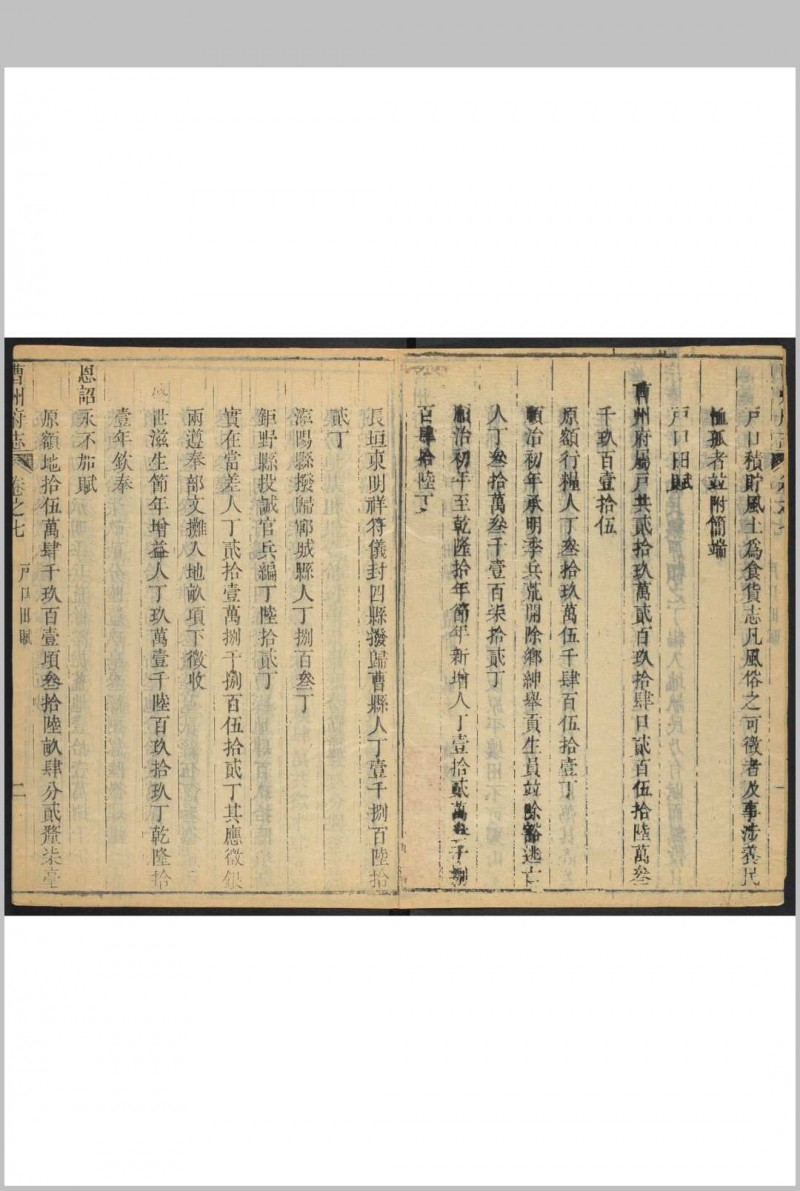 戸口積貯風土爲食貨志凡風俗之可徵者及事涉義民
恤孤者並附簡端
戸口田賦
曹州府屬戸共貳拾玖萬貳百玖拾肆口貳百伍拾陸萬叁
千玖百壹拾伍
原額行糧人丁叁拾玖萬伍千肆百伍拾壹丁
順治初年承明季兵荒開除鄉紳舉貢生員並除豁逃亡
人丁叁拾萬叁千壹百柒拾貳丁
順治初年至乾隆拾年節年新增人丁壹拾貳萬 千捌
百肆拾陸丁
長垣東明祥符儀封四縣撥歸曹縣人丁壹千捌百陸拾
貳丁
滋陽縣撥歸鄆城縣人丁捌百叁丁
鉅野縣投誠官兵編丁陸拾貳丁
實在當差人丁貳拾壹萬捌千捌百伍拾貳丁其應徵銀
兩遵奉部文攤入地畝項下徵收
世滋生節年增益人丁玖萬壹千陸百玖拾玖丁乾隆拾
壹年欽奉
恩詔永不加賦
原額地拾伍萬肆千玖百壹頃叁拾陸畝肆分貳釐柒毫
曹州府志 卷之七 戸口田賦 二